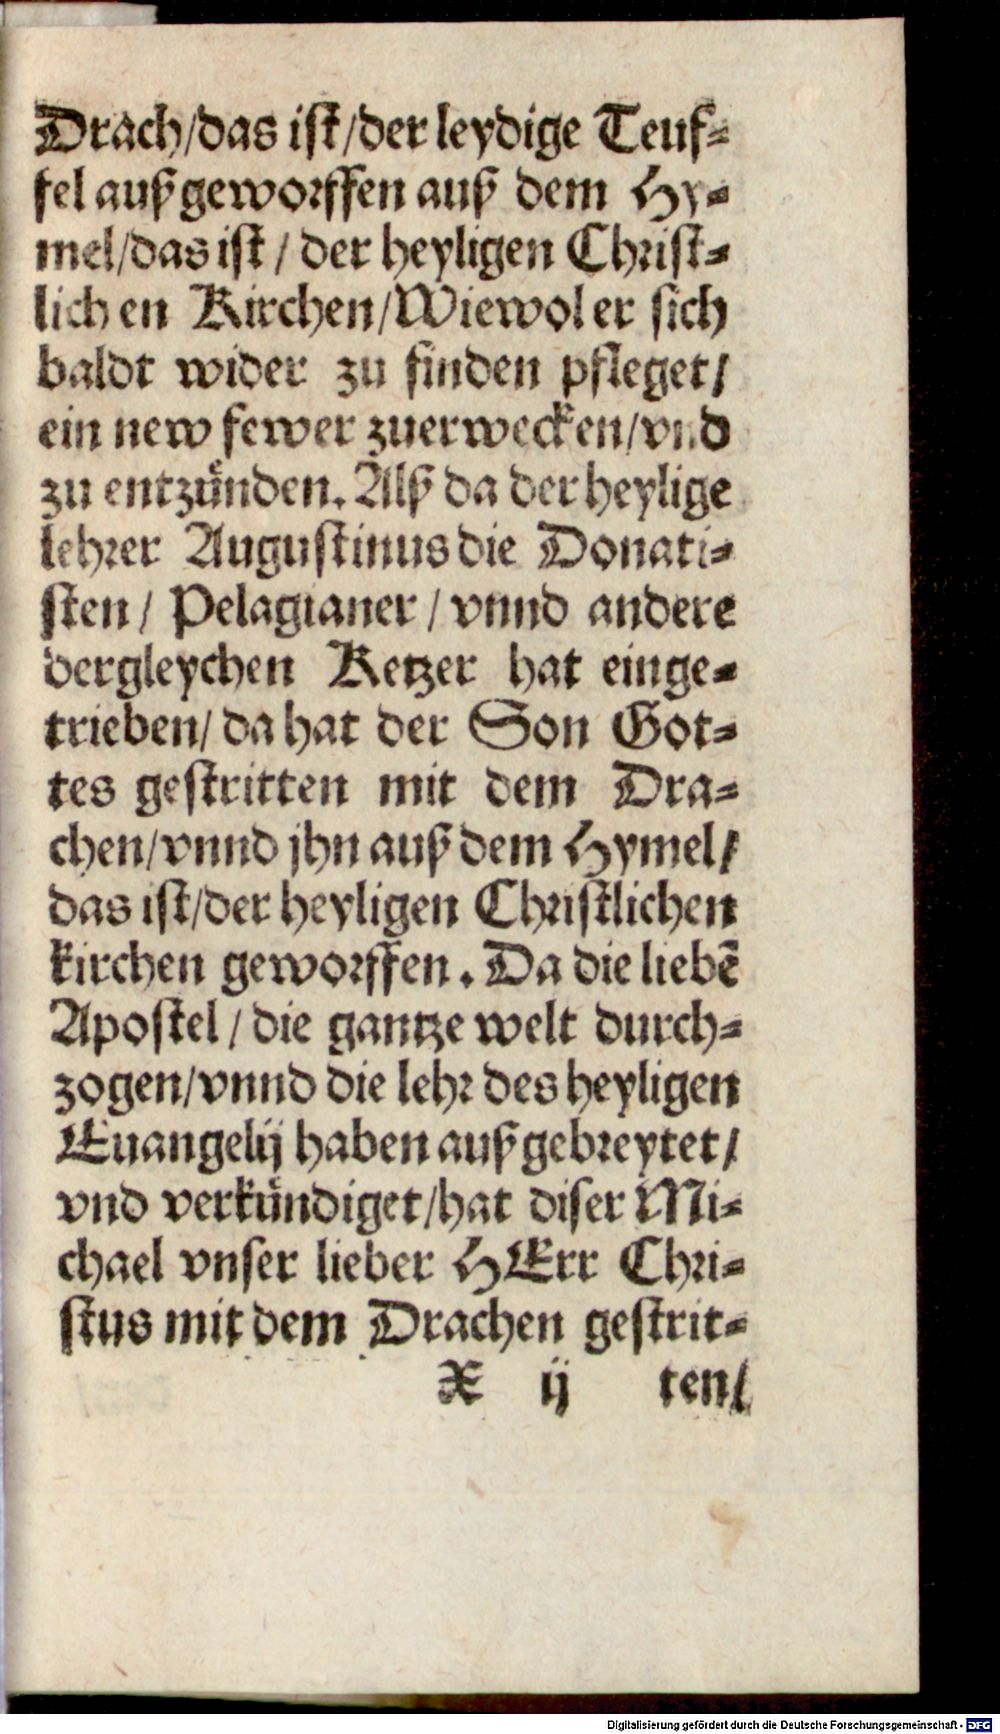 Drach/das ist/der leydige Teuf⸗
fel außgeworffen auß dem Hy⸗
mel/das ist/ der heyligen Christ⸗
lich en Kirchen/Wiewol er sich
baldt wider zu finden pfleget/
ein new fewer zuerwecken/vnd
zu entzünden. Alß da der heylige
lehrer Augustinus die Donati⸗
sten/ Pelagianer/ vnnd andere
dergleychen Ketzer hat einge⸗
trieben/ da hat der Son Got⸗
tes gestritten mit dem Dra⸗
chen/vnnd jhn auß dem Hymel/
das ist/der heyligen Christlichen
kirchen geworffen. Da die liebē
Apostel/ die gantze welt durch⸗
zogen/vnnd die lehr des heyligen
Euangelij haben außgebreytet/
vnd verkündiget/hat diser Mi⸗
chael vnser lieber HErr Chri⸗
stus mit dem Drachen gestrit⸗
X ij ten/
Digitalisierung gefördert durch die Deutsche Forschungsgemeinschaft - DFG